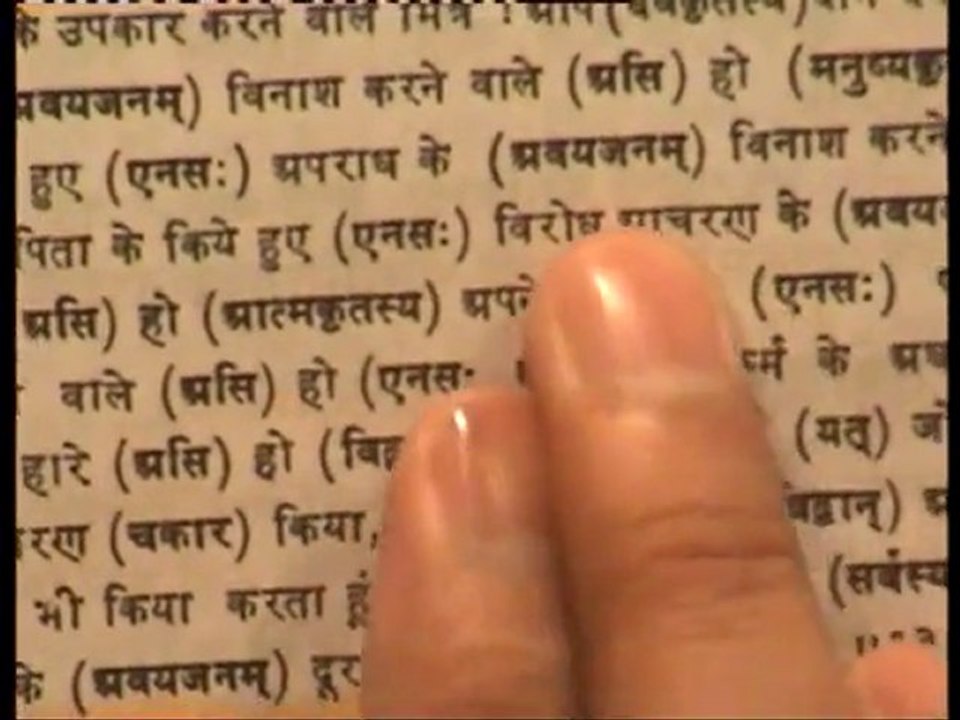 के उपकार करने वाले मित्र ! आप (देवकृतस्य)
अवयजनम्) विनाश करने वाले (असि) हो (मनुष्यकृ
हुए (एनसः) अपराध के (अवयजनम्) विनाश करने
पिता के किये हुए (एनसः) विरोध आचरण के (अवय
असि) हो (आत्मकृतस्य) अपने (एनसः)
वाले (असि) हो (एनसः र्म के अध
हारे (असि) हो (विद्व (यत्) जो
रण (चकार) किया, विद्वान्)
भी किया करता हूं (सर्वस्य
के (अवयजनम्) दूर